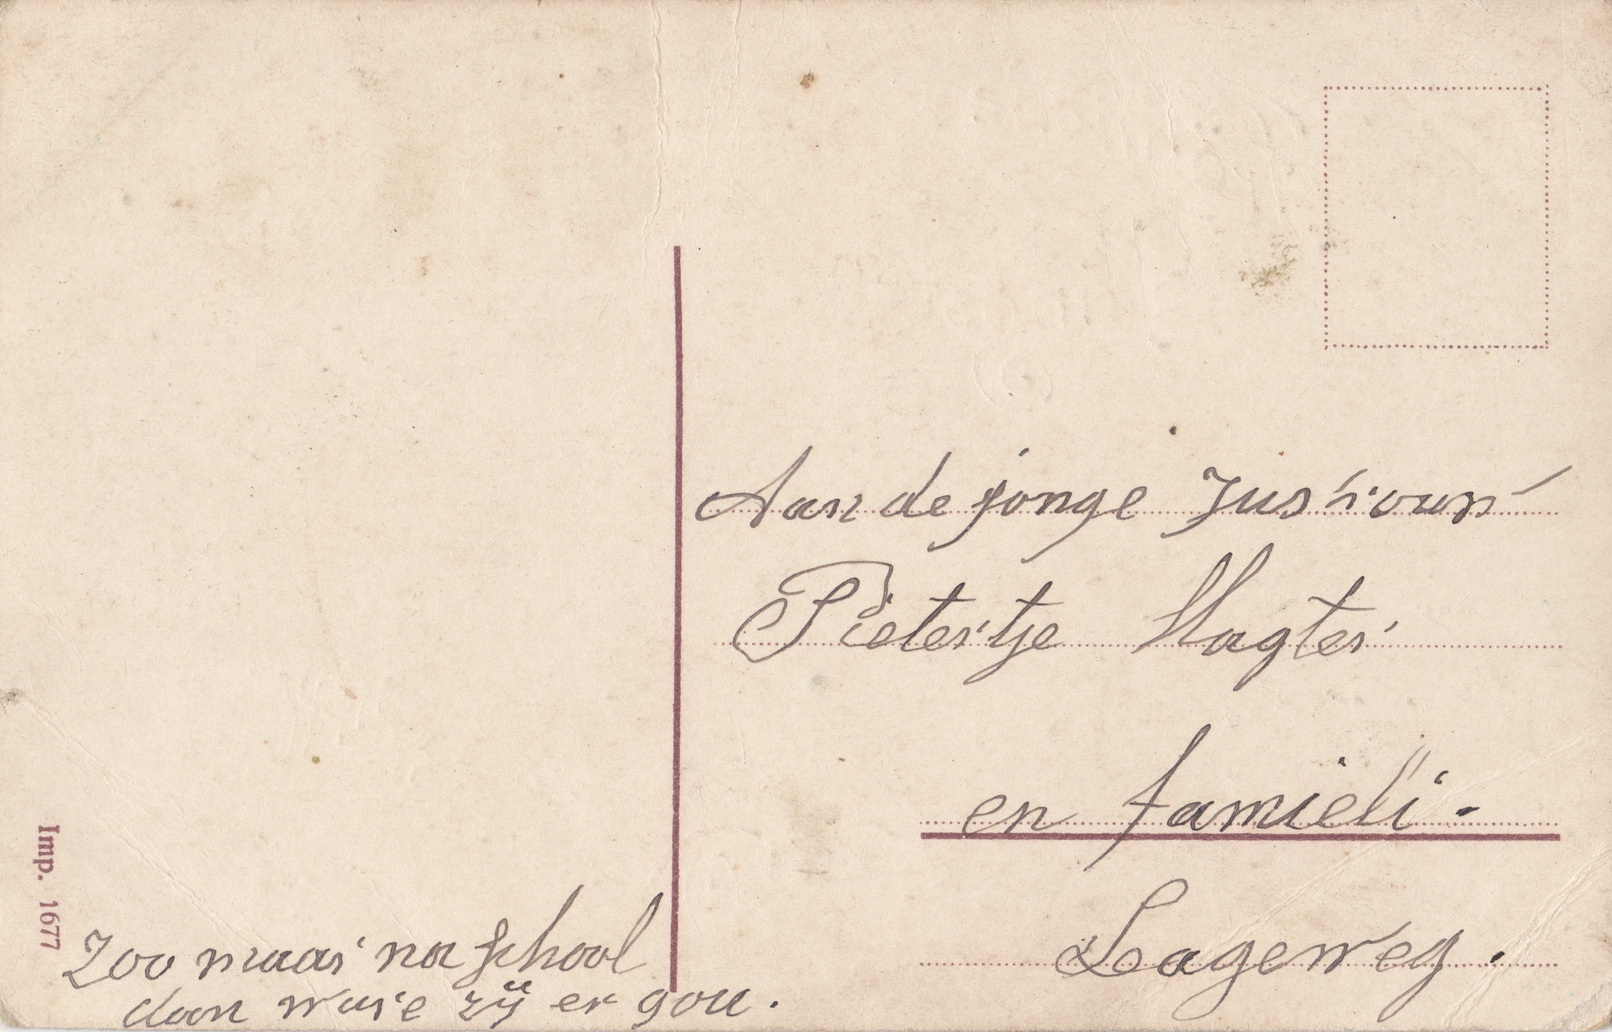 Aan de jonge Jusvrouw
Pietertje Slagter
en famieli.
Lageweg.
Imp. 1677
Zoo maar na school
dan ware zÿ er gou.